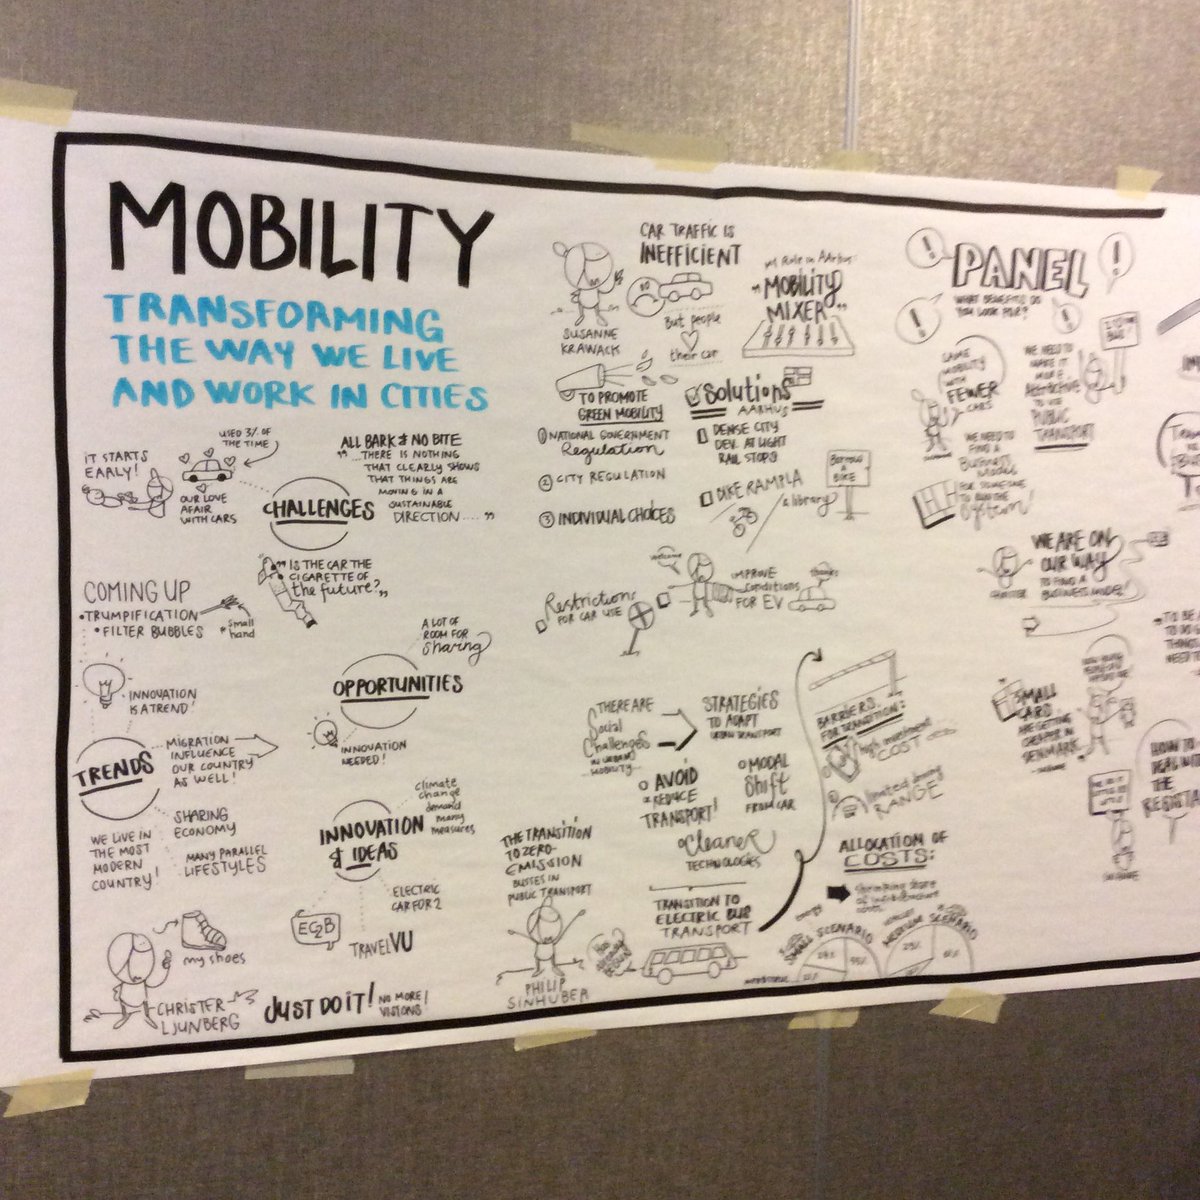 MOBILITY
TRANSFORMING
THE WAY WE LIVE
AND WORK IN CITIES
USED 3% OF
THE TIME
IT STARTS
EARLY!
OUR LOVE
AFAIR
WITH CARS
CHALLENGES
ALL BARK & NO BITE
"...THERE IS NOTHING
THAT CLEARLY SHOWS
THAT THINGS ARE
MOVING IN A
SUSTAINABLE
DIRECTION...."
"IS THE CAR THE
CIGARETTE OF
the future?"
COMING UP
•TRUMPIFICATION
•FILTER BUBBLES
small
hand
A LOT OF
ROOM FOR
sharing
OPPORTUNITIES
INNOVATION
NEEDED!
INNOVATION
IS A TREND!
TRENDS
MIGRATION
INFLUENCE
OUR COUNTRY
AS WELL!
SHARING
ECONOMY
MANY PARALLEL
LIFESTYLES
WE LIVE IN
THE MOST
MODERN
COUNTRY!
INNOVATION
& IDEAS
climate
change
demand
many
measures
ELECTRIC
CAR FOR 2
EC2B
TRAVELVU
my shoes
CHRISTER
LJUNBERG
JUST DO IT! NO MORE
VISIONS!
SUSANNE
KRAWACK
CAR TRAFFIC IS
INEFFICIENT
But people
their car
Role in Aarhus:
"MOBILITY
MIXER"
TO PROMOTE
GREEN MOBILITY
1 NATIONAL GOVERNMENT
Regulation
2 CITY REGULATION
3 INDIVIDUAL CHOICES
Solutions
AARHUS
DENSE CITY
DEV. AT LIGHT
RAIL STOPS
BIKE RAMPLA
a library
BORROW
A
BIKE
welcome
Restrictions
FOR CAR USE
IMPROVE
Conditions
FOR EV
thanks
THERE ARE
Social
Challenges
IN URBAN
MOBILITY...
STRATEGIES
TO ADAPT
URBAN TRANSPORT
AVOID
REDUCE
TRANSPORT!
MODAL
Shift
FROM CAR
Cleaner
TECHNOLOGIES
THE TRANSITION
TO ZERO-
EMISSION
BUSSES IN
PUBLIC TRANSPORT
PHILIP
SINHUBER
TRANSITION TO
ELECTRIC BUS
TRANSPORT
BARRIERS
FOR TRANSITION:
high investment
COST
limited driving
RANGE
ALLOCATION OF
COSTS:
Shrinking share
of infrastructure
costs
SMALL SCENARIO
MEDIUM SCENARIO
PANEL
WHAT BENEFITS DO
YOU LOOK FOR?
SAME
MOBILITY
WITH
FEWER
CARS
WE NEED TO
MAKE IT
MORE
Attractive
TO USE
PUBLIC
TRANSPORT
WE NEED TO
FIND A
Business Model
FOR SOMEONE
TO RUN THE
System!
WE ARE ON
OUR WAY
TO FIND A
BUSINESS MODEL!
SMALL
CARS
ARE GETTING
CHEAPER IN
DENMARK
HOW TO
DEAL WITH
THE